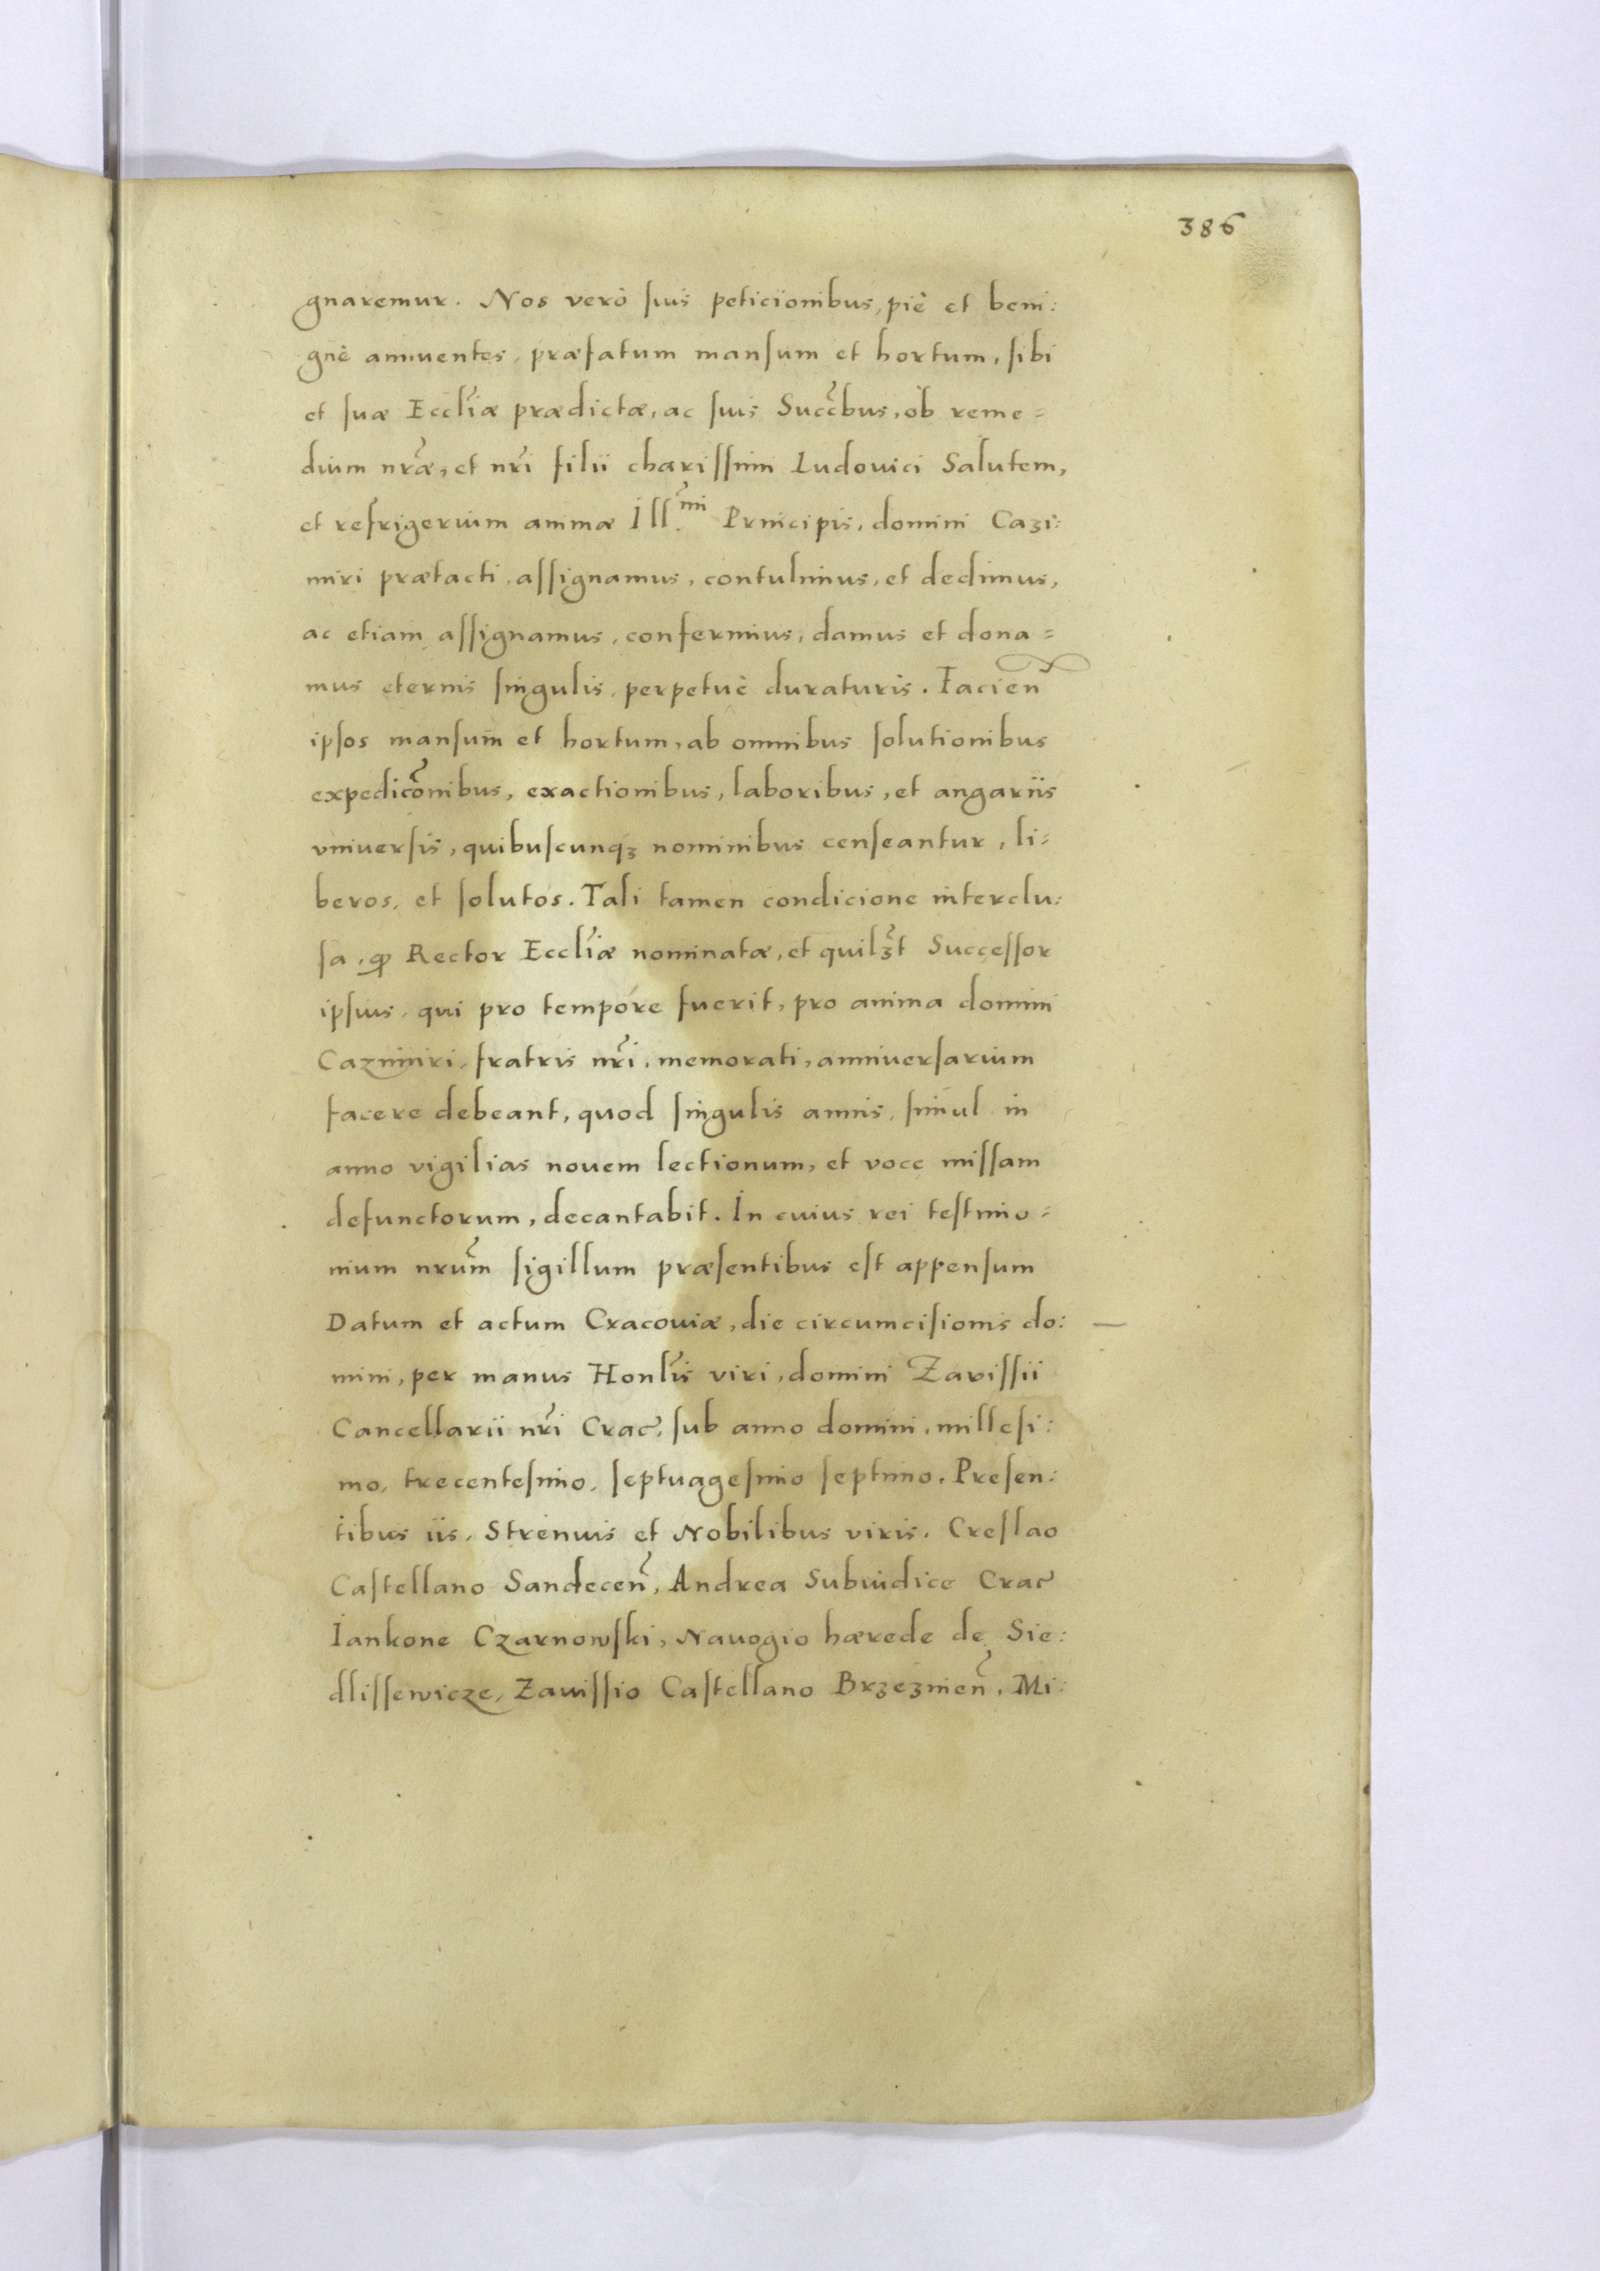 386
gnaremur. Nos verò suis peticionibus, piè et beni:
gnè annuentes, præfatum mansum et hortum, sibi
et suæ Eccl̃iæ prædictæ, ac suis Succc̃bus, ob reme=
dium nr̃æ, et nr̃i filii charissimi Ludouici Salutem,
et refrigerium animæ Ill.mi Principis, domini Cazi:
miri prætacti, assignamus, contulimus, et dedimus,
ac etiam assignamus, conferimus, damus et dona=
mus eternis singulis, perpetuè duraturis. Facien
ipsos mansum et hortum, ab omnibus solutionibus
expedicõnibus, exactionibus, laboribus, et angariis
vniuersis, quibuscunqꝫ nominibus censeantur, li=
beros, et solutos. Tali tamen condicione interclu:
sa, ꝙ Rector Eccl̃iæ nominatæ, et quilꝫt Successor
ipsius, qui pro tempore fuerit, pro anima domini
Cazimiri, fratris nr̃i, memorati, anniuersarium
facere debeant, quod singulis annis, simul in
anno vigilias nouem lectionum, et voce missam
defunctorum, decantabit. In cuius rei testimo=
nium nrũm sigillum præsentibus est appensum
Datum et actum Cracouiæ, die circumcisionis do:
mini, per manus Honl̃is viri, domini Zavissii
Cancellarii nr̃i Crac̃, sub anno domini, millesi:
mo, trecentesimo, septuagesimo septimo. Presen:
tibus iis, Strenuis et Nobilibus viris. Creslao
Castellano Sandeceñ, Andrea Subiudice Crac̃
Iankone Czarnowski, Nauogio hærede de Sie:
dlissewicze, Zauissio Castellano Brzezineñ, Mi: